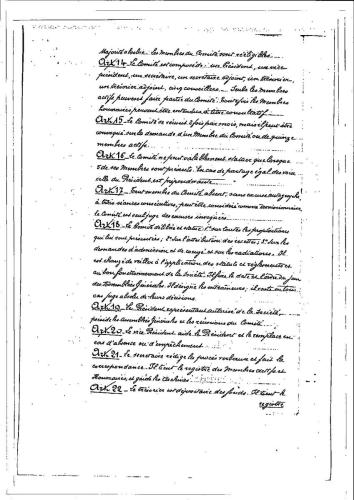 majorité absolue. Les Membres du Comité sont rééligibles.
Art. 14. Le Comité est composé de : un Président, un vice
président, un secrétaire, un secrétaire adjoint, un trésorier,
un trésorier adjoint, cinq conseillers. Seuls les membres
actifs peuvent faire partie du Comité. Toutefois les Membres
honoraires peuvent être entendus à titre consultatif.
Art. 15. Le Comité se réunit fois par mois, mais il peut être
convoqué sur la demande d'un Membre du Comité ou de quinze
membres actifs.
Art. 16. Le Comité ne peut valablement statuer que lorsque
de ses Membres sont présents. En cas de partage égal des voix
celle du Président est prépondérante.
Art. 17. Tout membre du Comité absent, sans excuse
à trois séances consécutives, peut être considéré comme démissionnaire,
le Comité est seul juge des excuses invoquées.
Art. 18. Le Comité délibère et statue : 1° sur toutes les propositions
qui lui sont présentées ; 2° sur des recettes ; 3° sur les
demandes d'admission et de congé et sur les radiations. Il
est chargé de veiller à l'application des statuts et règlements et
au bon fonctionnement de la Société. Il fixe la date et l'ordre du jour
des Assemblées Générales. Il désigne les
cas juge de leurs décisions.
Art. 19. Le Président représentant autorisé de la Société,
préside les Assemblées Générales et les réunions du Comité.
Art. 20. Le vice Président aide le Président et le remplace en
cas d'absence ou d'empêchement.
Art. 21. Le secrétaire rédige les procès verbaux et fait la
correspondance. Il tient le registre des Membres actifs et
Honoraires, et garde les archives.
Art. 22. Le trésorier est dépositaire des fonds. Il tient le
registre